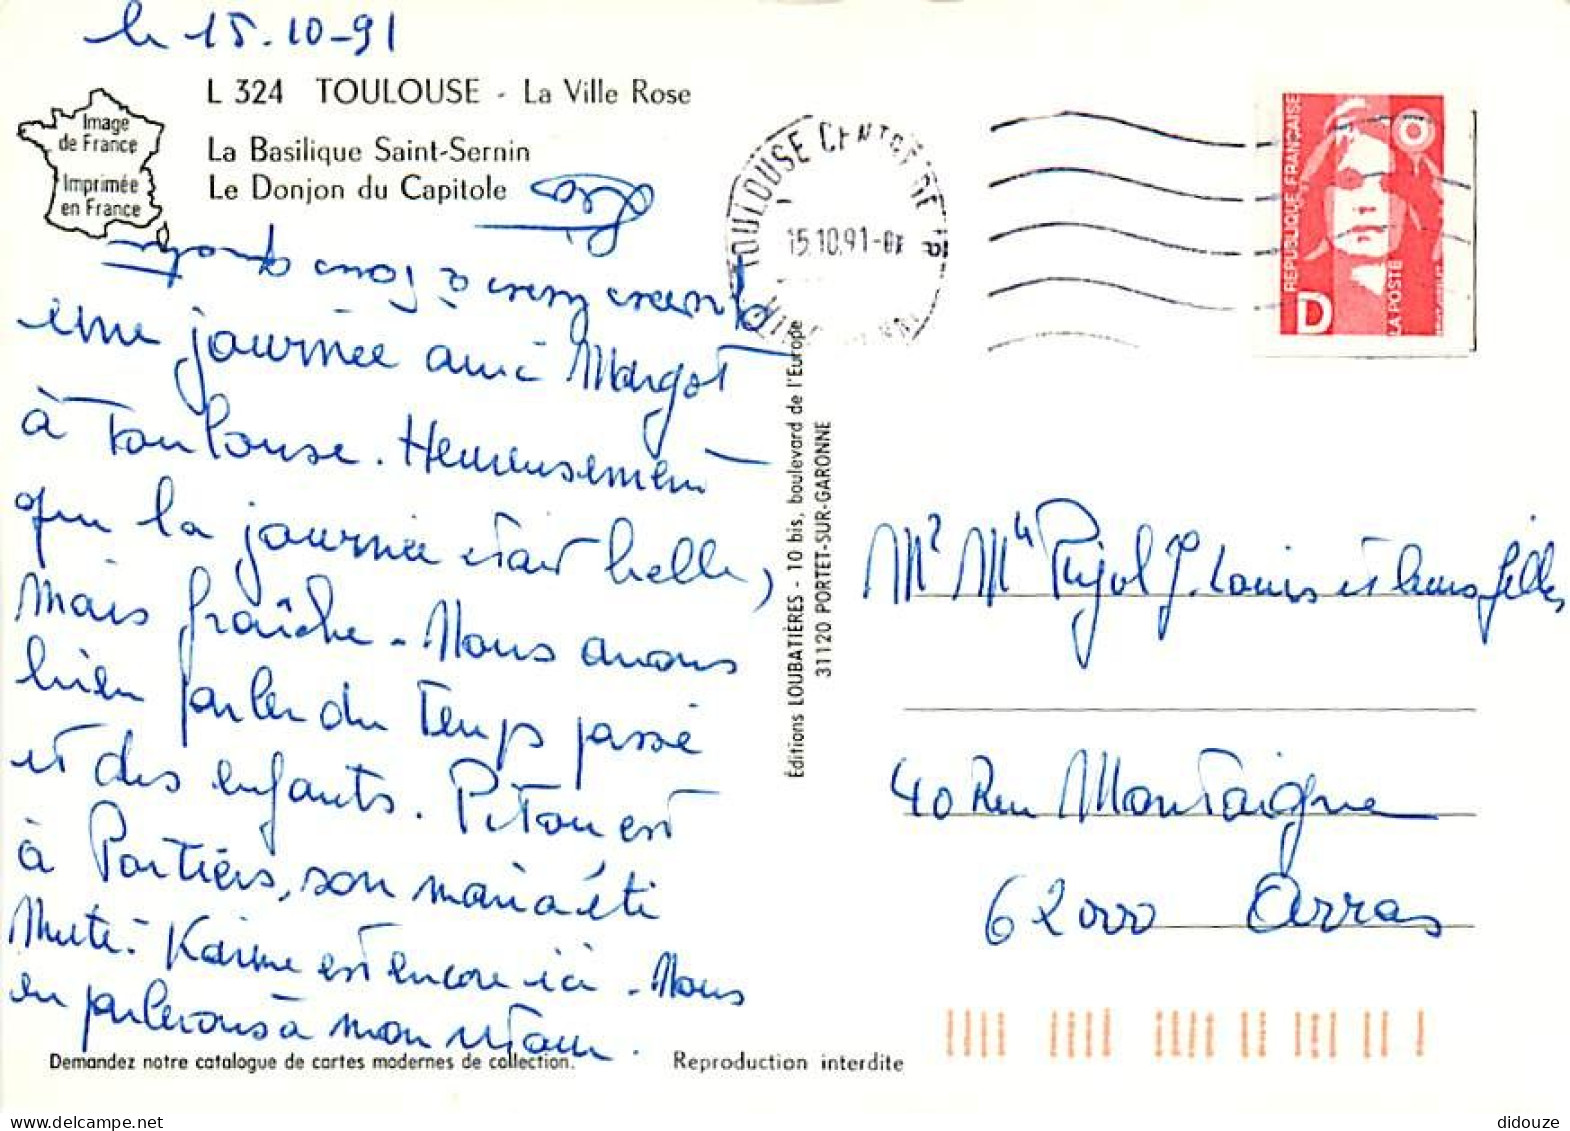 le 15-10-91
L 324 TOULOUSE - La Ville Rose
Image
de France
Imprimée
en France
La Basilique Saint-Sernin
Le Donjon du Capitole
une journée avec Margot
à Toulouse. Heureusement
que la journée était belle,
mais fraîche - Nous avons
bien parler du temps passé
et des enfants. Pitou est
à Poitiers, son mari a été
Muté. Karine est encore ici - Nous
en parlerons à mon retour.
à tous quatre
Demandez notre catalogue de cartes modernes de collection.
Reproduction interdite
Éditions LOUBATIÈRES - 10 bis, boulevard de l'Europe
31120 PORTET-SUR-GARONNE
TOULOUSE
15.10.91
REPUBLIQUE FRANÇAISE
LA POSTE
D
Mr Me Pujol J. Louis et leurs filles
40 Rue Montaigne
62000 Arras
didouze